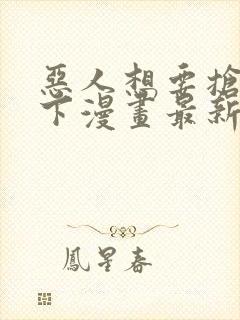 惡人想要搶
下漫畫最新
鳳星春